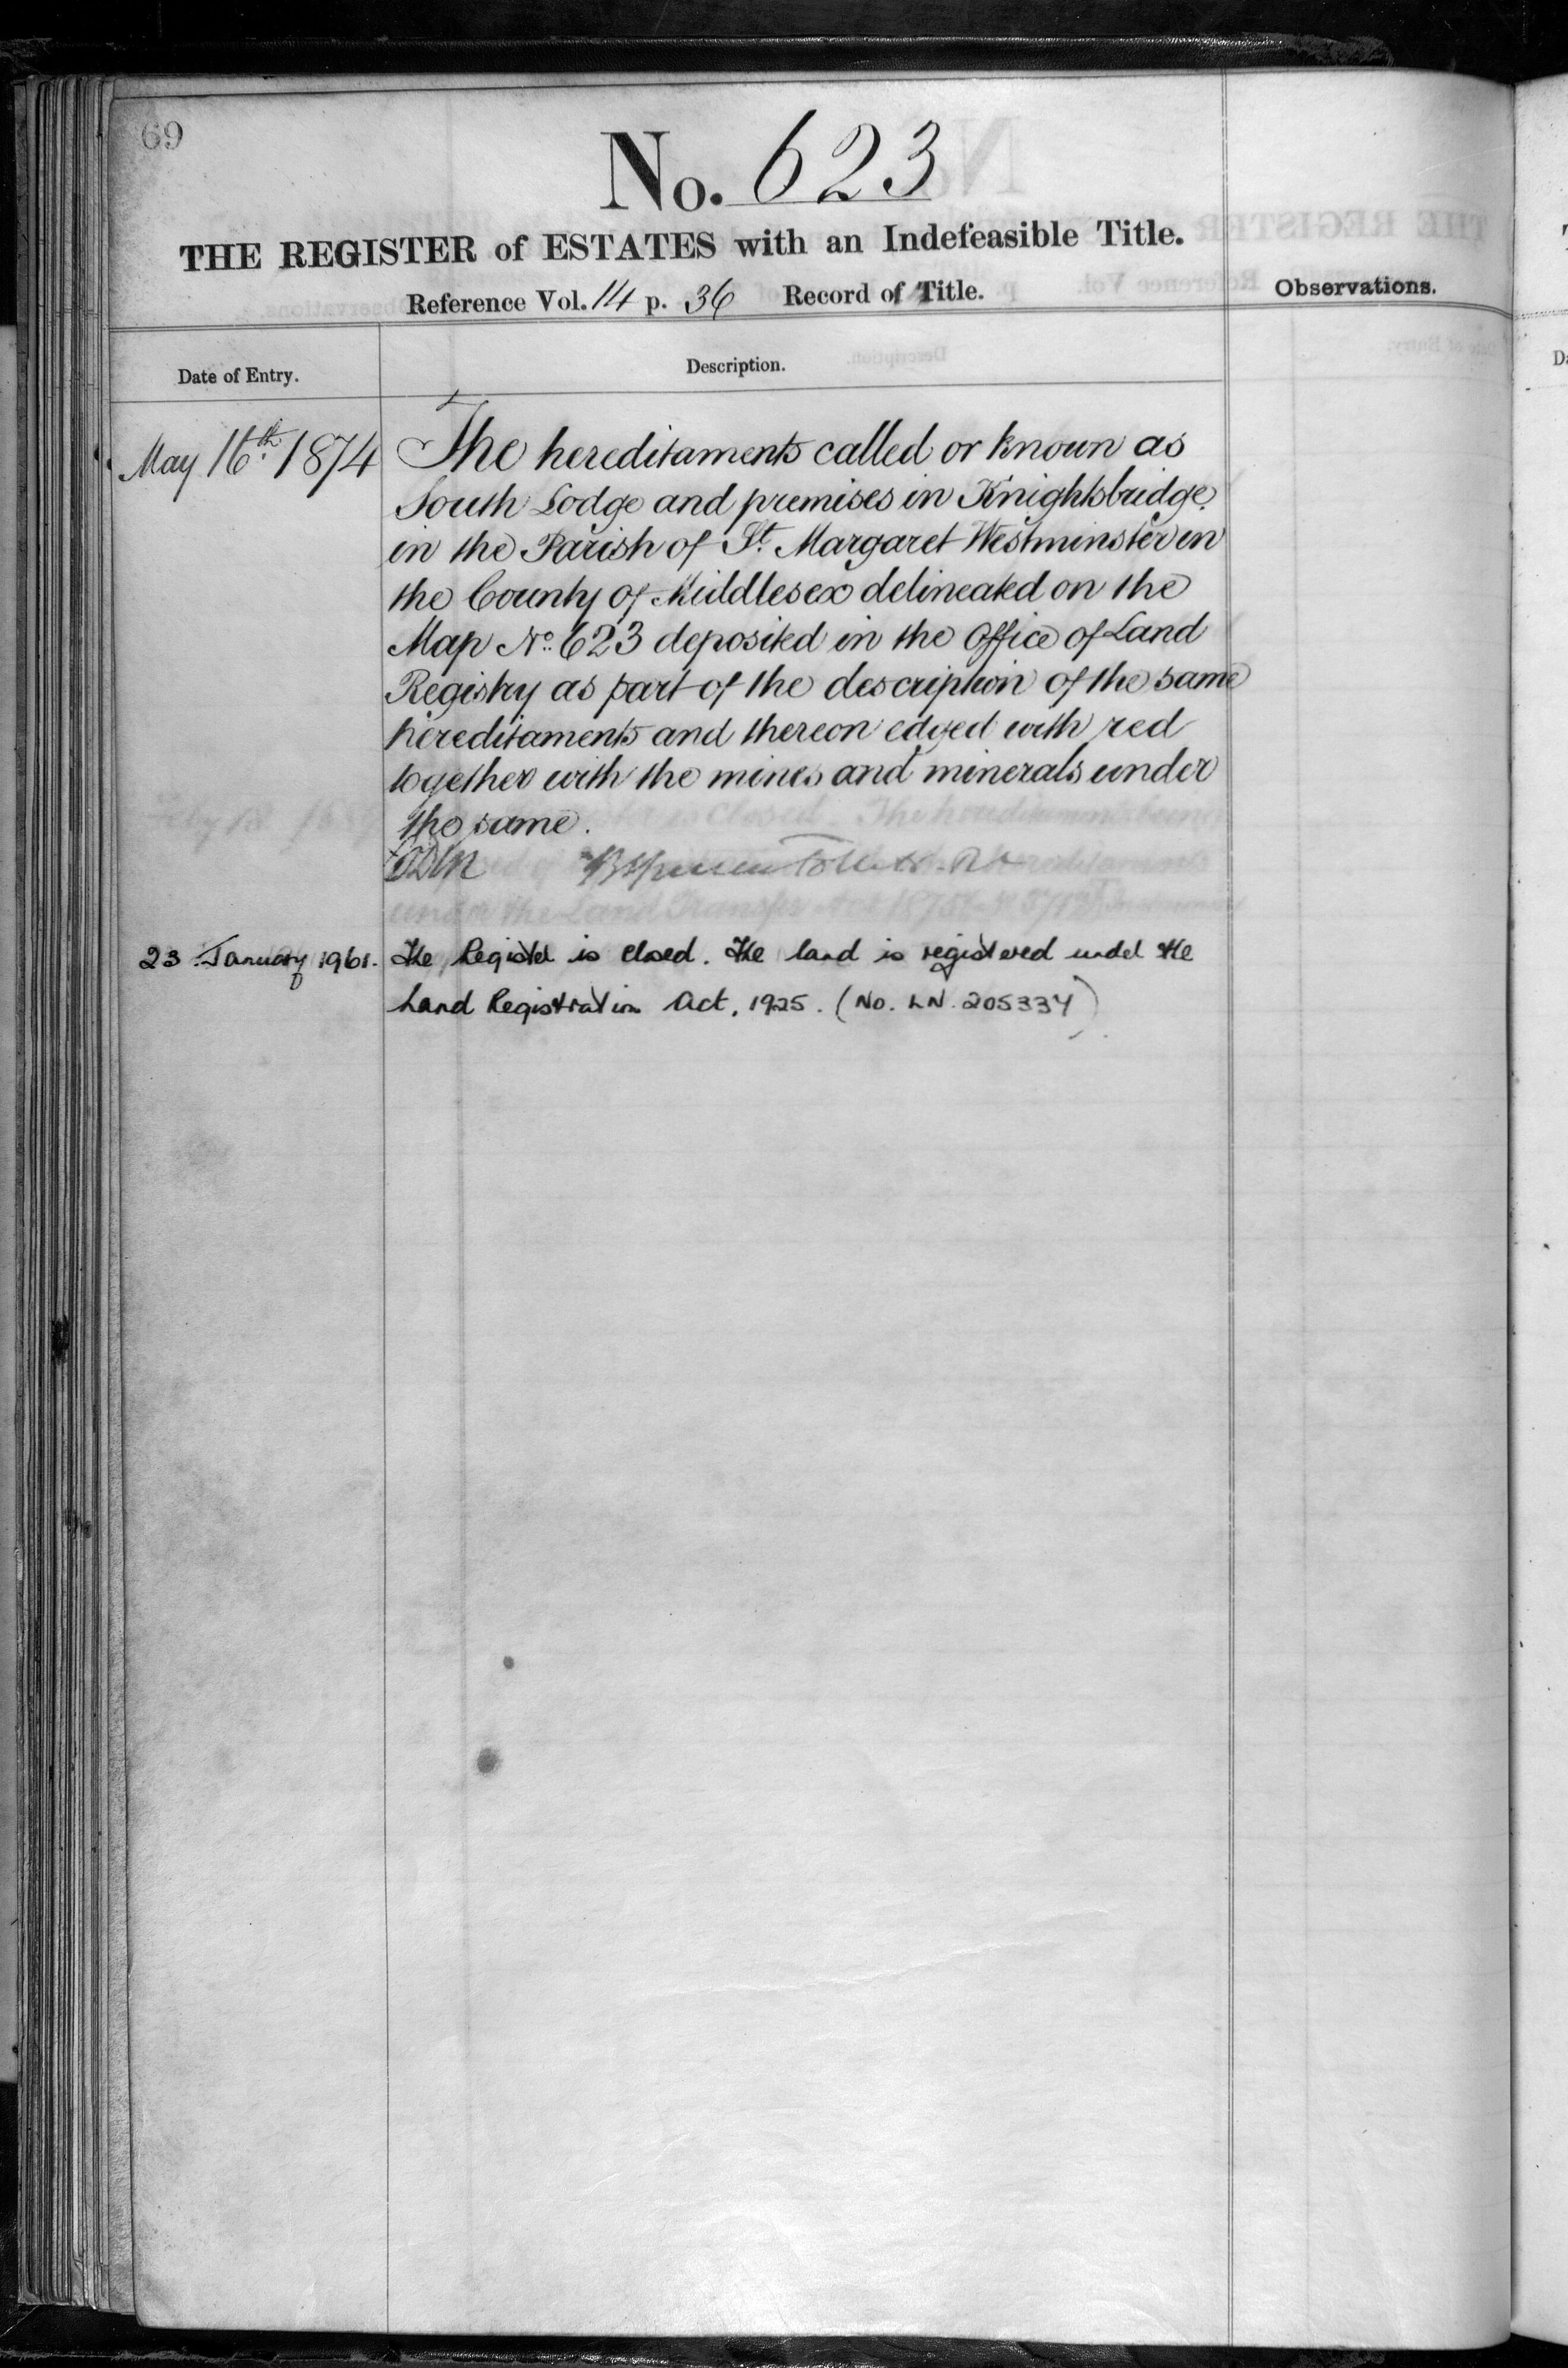 69
No. 623
THE REGISTER of ESTATES with an Indefeasible Title.
Reference Vol. 14 p. 36 Record of Title.
Observations.
Date of Entry.
Description.
May 16th 1874
The hereditaments called or known as
South Lodge and premises in Knightsbridge
in the Parish of St. Margaret Westminster in
the County of Middlesex delineated on the
Map No. 623 deposited in the Office of Land
Registry as part of the description of the same
hereditaments and thereon edged with red
together with the mines and minerals under
the same.
23 January 1961.
The Register is closed. The land is registered under the
Land Registration Act, 1925. (No. LN. 205334)